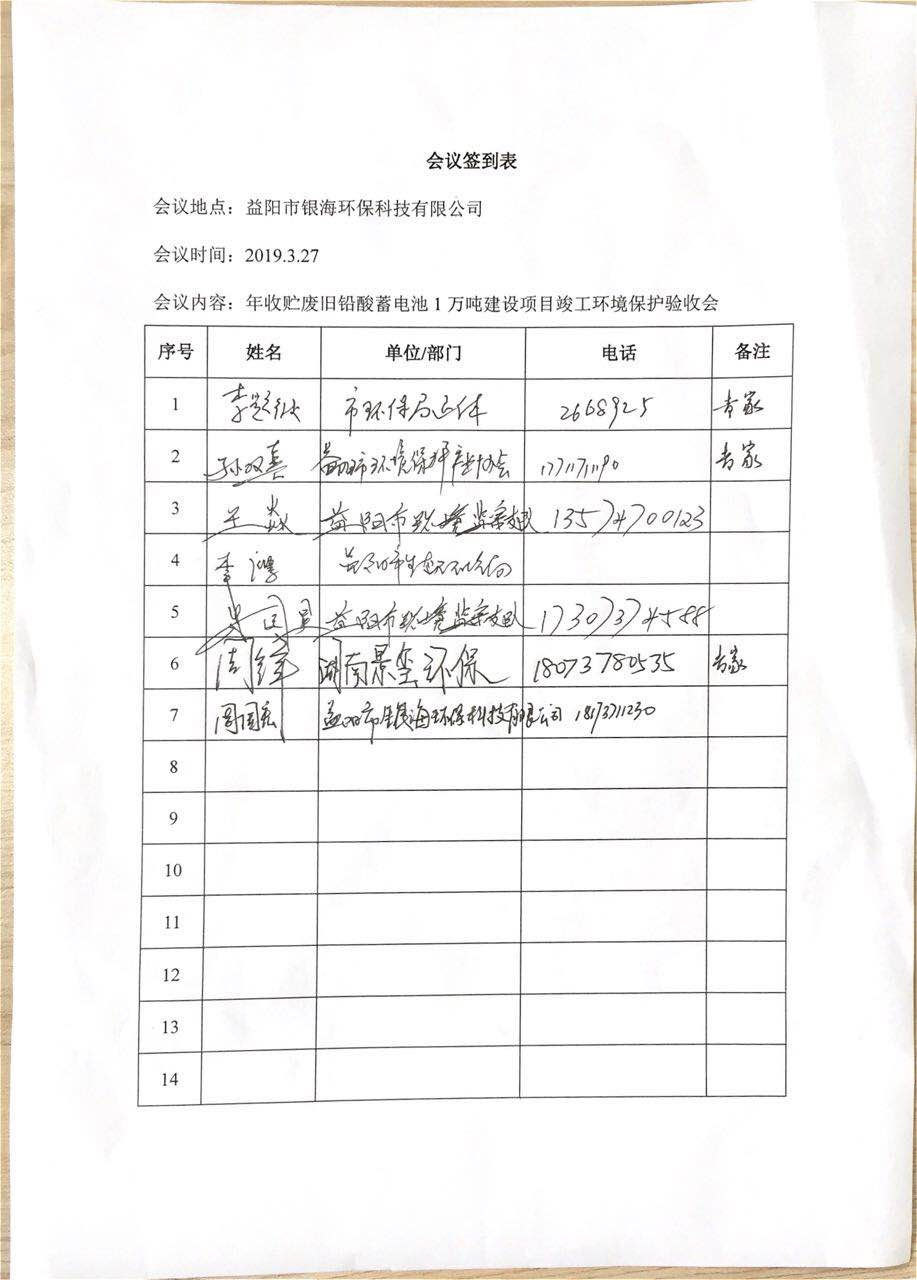 会议签到表
会议地点：益阳市银海环保科技有限公司
会议时间：2019.3.27
会议内容：年收贮废旧铅酸蓄电池1万吨建设项目竣工环境保护验收会
序号 姓名 单位/部门 电话 备注
1 市环保局退休 2668925 专家
2 孙双喜 益阳市环境保护产业协会 专家
3 王焱 益阳市环境监察支队 13574700123
4 李鸿
5 益阳市环境监察支队 17307374588
6 周锋 湖南景玺环保 18073780535 专家
7 周国宏 益阳市银海环保科技有限公司 18173711230
8
9
10
11
12
13
14